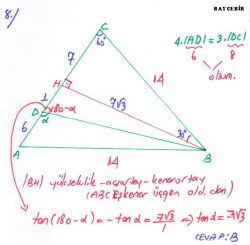 BAYCEBİR
8./
C
60°
4.|AD| = 3.|DC|
6 8
olsun.
7
H
14
1
7√3
D
180-α
α
6
30°
A
14
B
|BH| yükseklik-açıortay-kenarortay
(ABC Eşkenar üçgen old. dan)
tan(180-α) = -tanα = 7√3/1 ⇒ tanα = -7√3
CEVAP: B